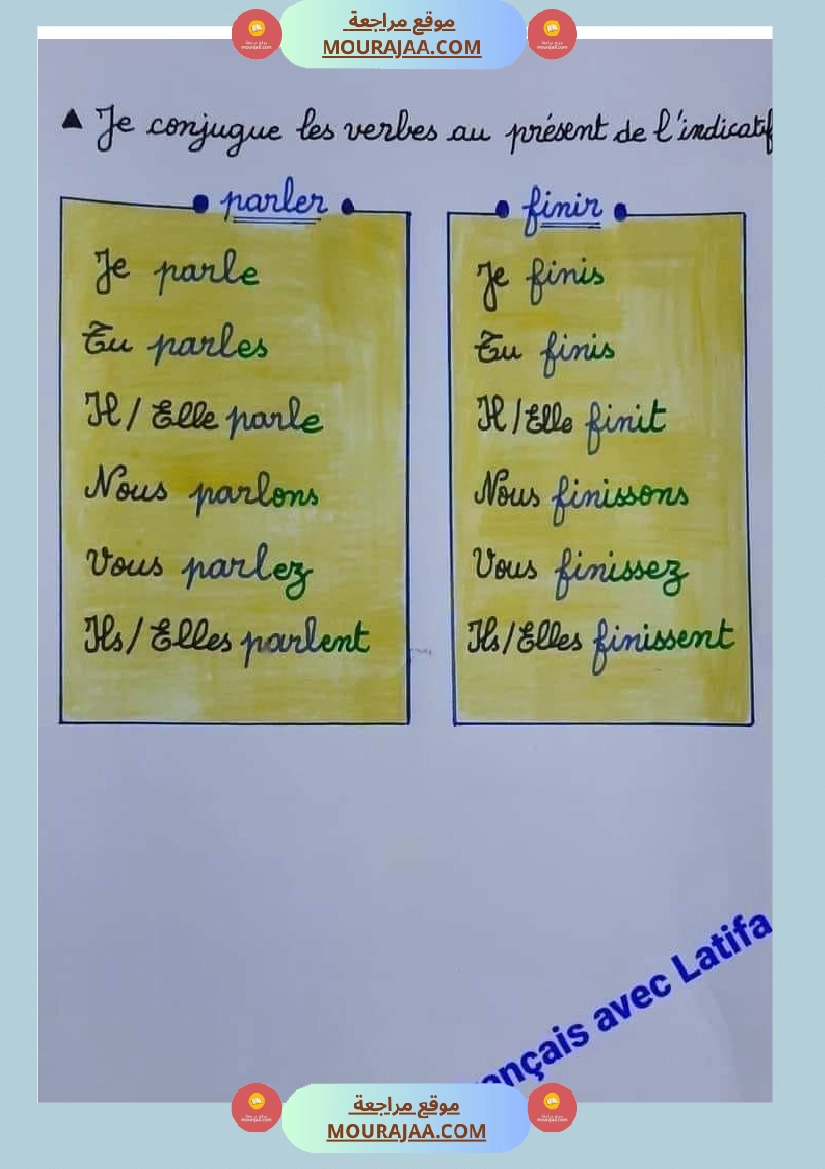 موقع مراجعة
MOURAJAA.COM
▲ Je conjugue les verbes au présent de l'indicatif
• parler •
Je parle
Tu parles
Il / Elle parle
Nous parlons
Vous parlez
Ils / Elles parlent
• finir •
Je finis
Tu finis
Il / Elle finit
Nous finissons
Vous finissez
Ils / Elles finissent
ançais avec Latifa
موقع مراجعة
MOURAJAA.COM